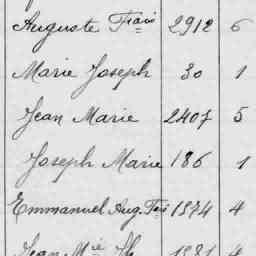 Auguste Frçois 2912 6
Marie Joseph 30 1
Jean Marie 2407 5
Joseph Marie 186 1
Emmanuel Aug. Fçois 1574 4
Jean Mie 1581 4